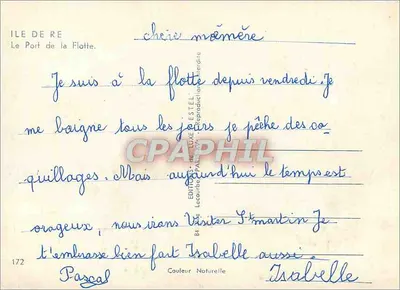 ILE DE RE
Le Port de la Flotte.
chère mœmère
Je suis à la flotte depuis vendredi. Je
me baigne tous les jours je pêche des co-
quillages. Mais aujourd'hui le temps est
orageux, nous irons Visiter St martin Je
t'embrasse bien fort Isabelle aussi.
Pascal
Isabelle
172
Couleur Naturelle
CPAPHIL